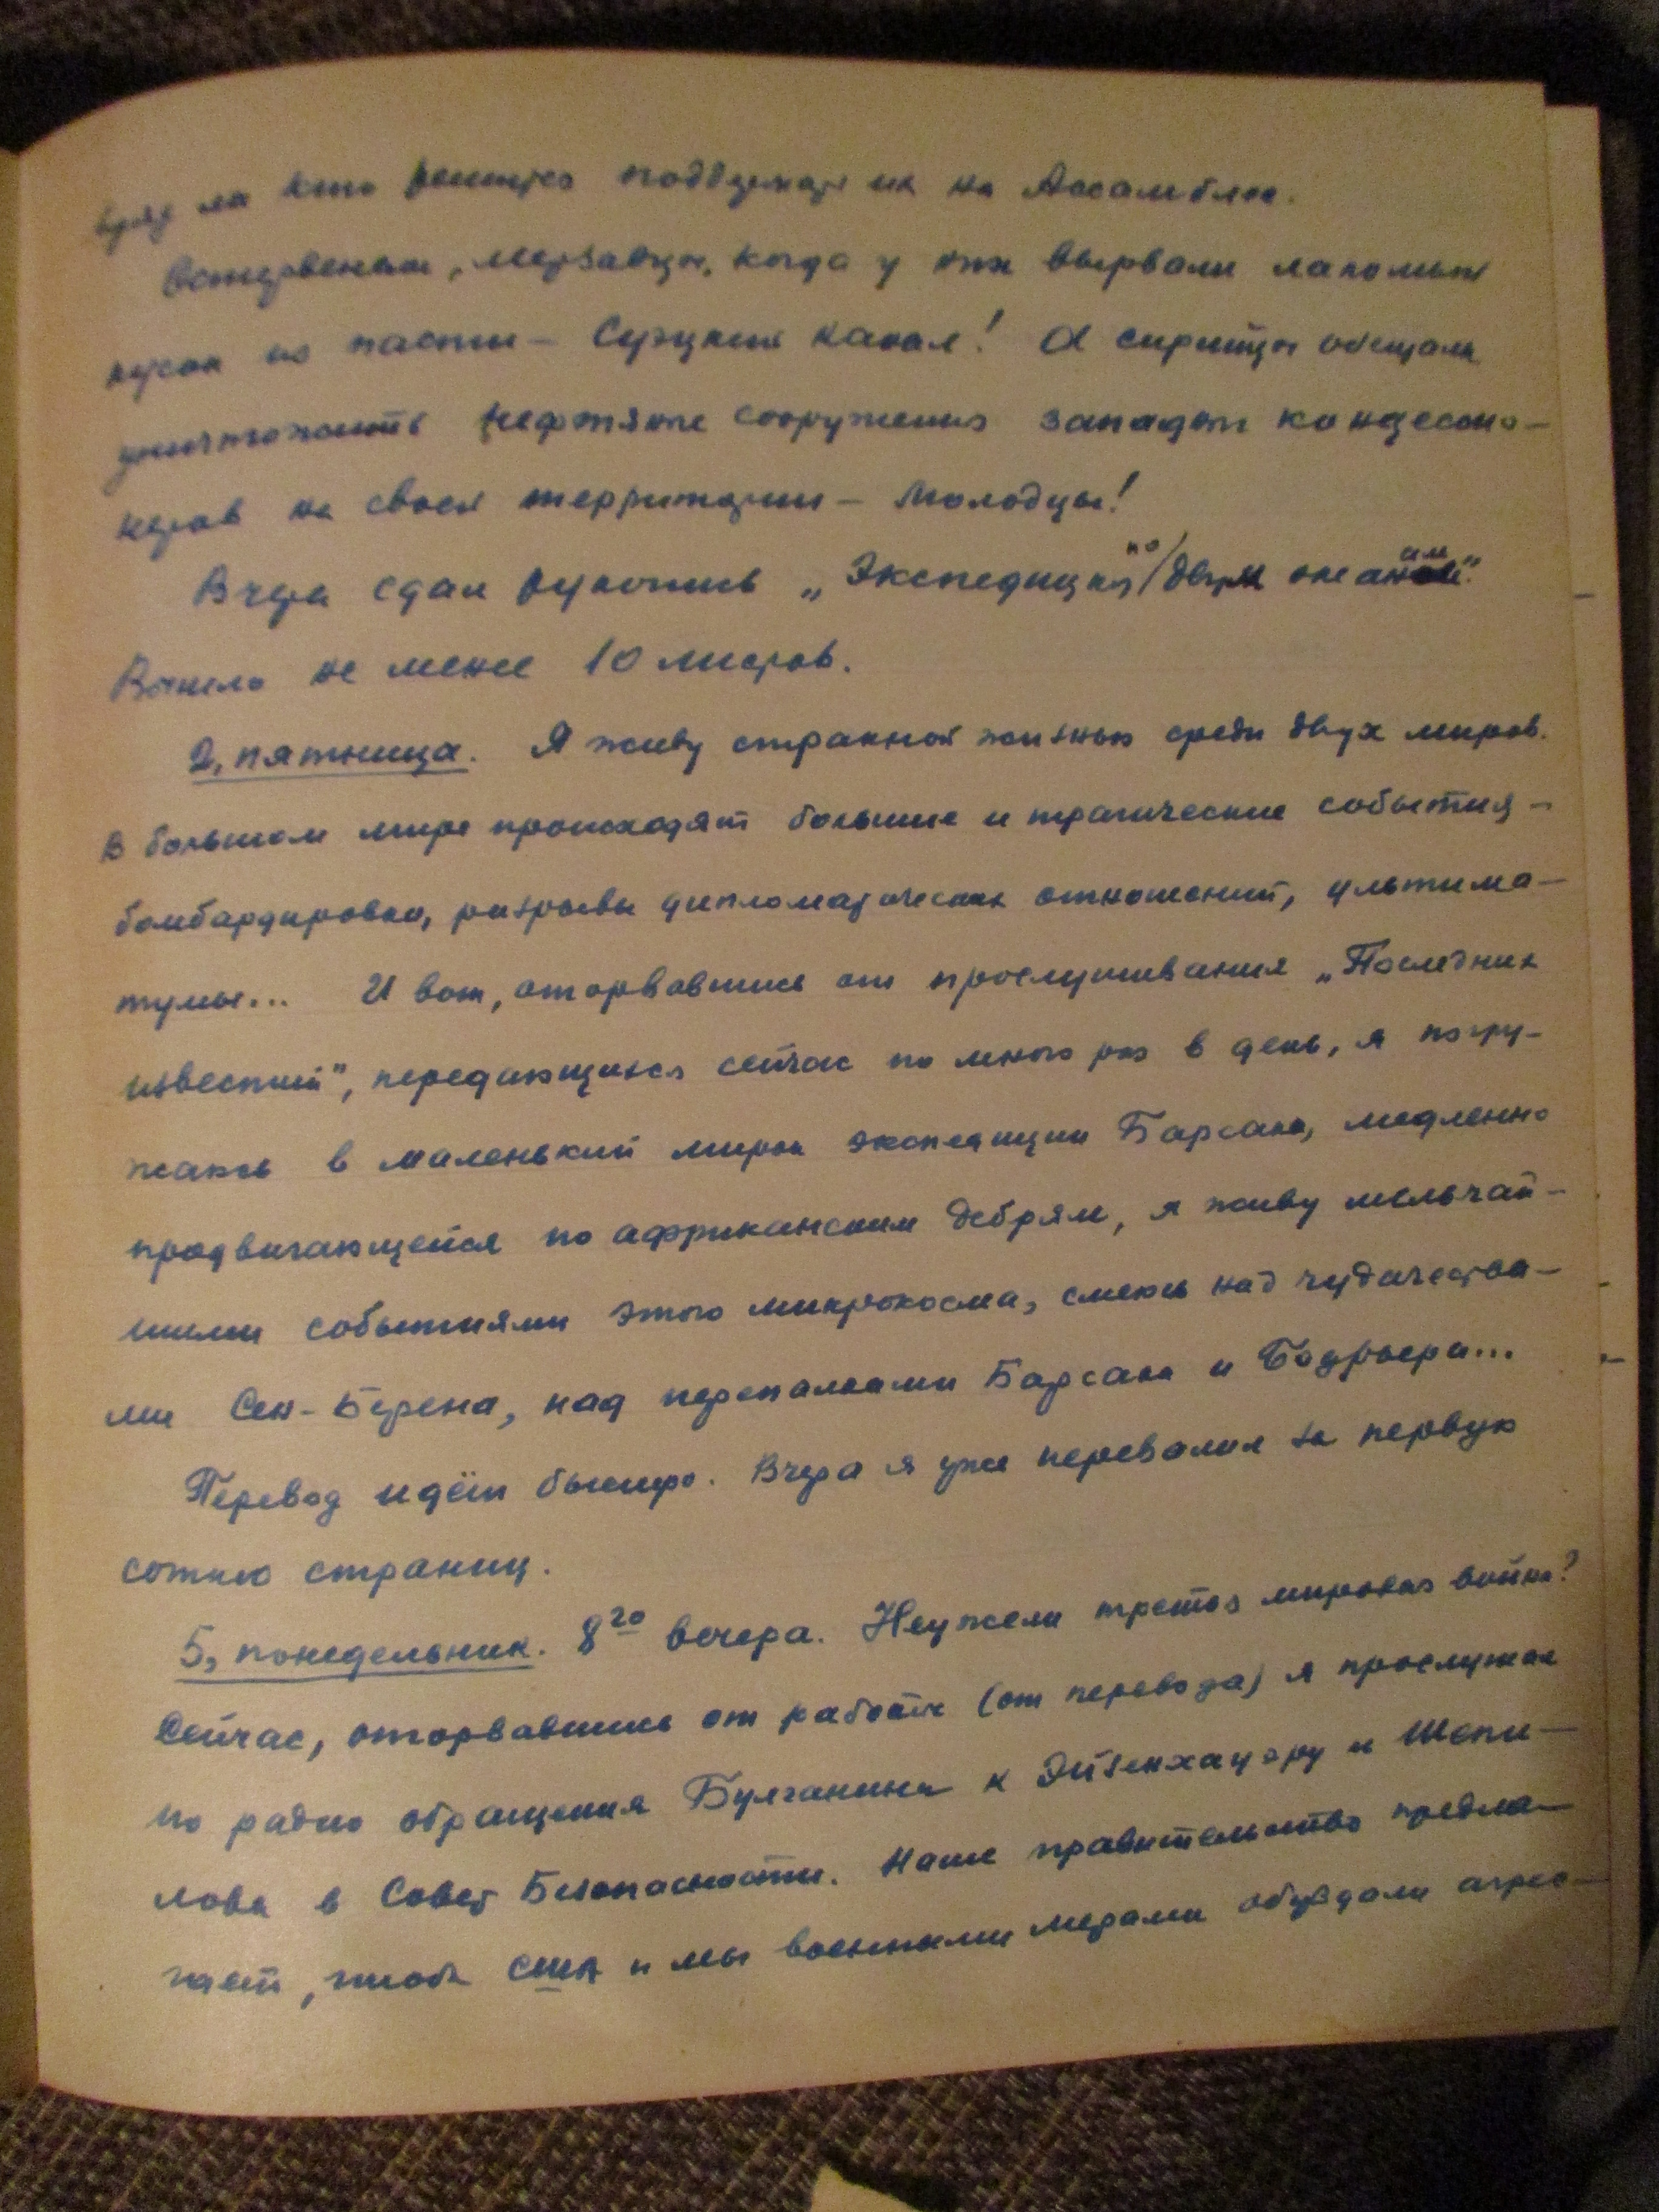 вряд ли кто решится поддержать их на Ассамблее.
Остервенели, мерзавцы, когда у них вырвали лакомый
кусок из пасти – Суэцкий канал! А сирийцы обещали
уничтожить нефтяные сооружения западных концессио-
неров на своей территории – молодцы!
Вчера сдал рукопись „Экспедиция по двум океанам“.
Вышло не менее 10 листов.
2, пятница. Я живу странной жизнью среди двух миров.
В большом мире происходят большие и трагические события –
бомбардировки, разрывы дипломатических отношений, ультима-
тумы... И вот, оторвавшись от прослушивания „Последних
известий“, передающихся сейчас по много раз в день, я погру-
жаюсь в маленький мирок экспедиции Барсака, медленно
продвигающейся по африканским дебрям, я живу мельчай-
шими событиями этого микрокосма, смеюсь над чудачества-
ми Сен-Берена, над перепалками Барсака и Бодрьера...
Перевод идёт быстро. Вчера я уже перевалил за первую
сотню страниц.
5, понедельник. 8²⁰ вечера. Неужели третья мировая война?
Сейчас, оторвавшись от работы (от перевода) я прослушал
по радио обращения Булганина к Эйзенхауэру и Шепи-
лова в Совет Безопасности. Наше правительство предла-
гает, чтобы США и мы военными мерами обуздали агрес-